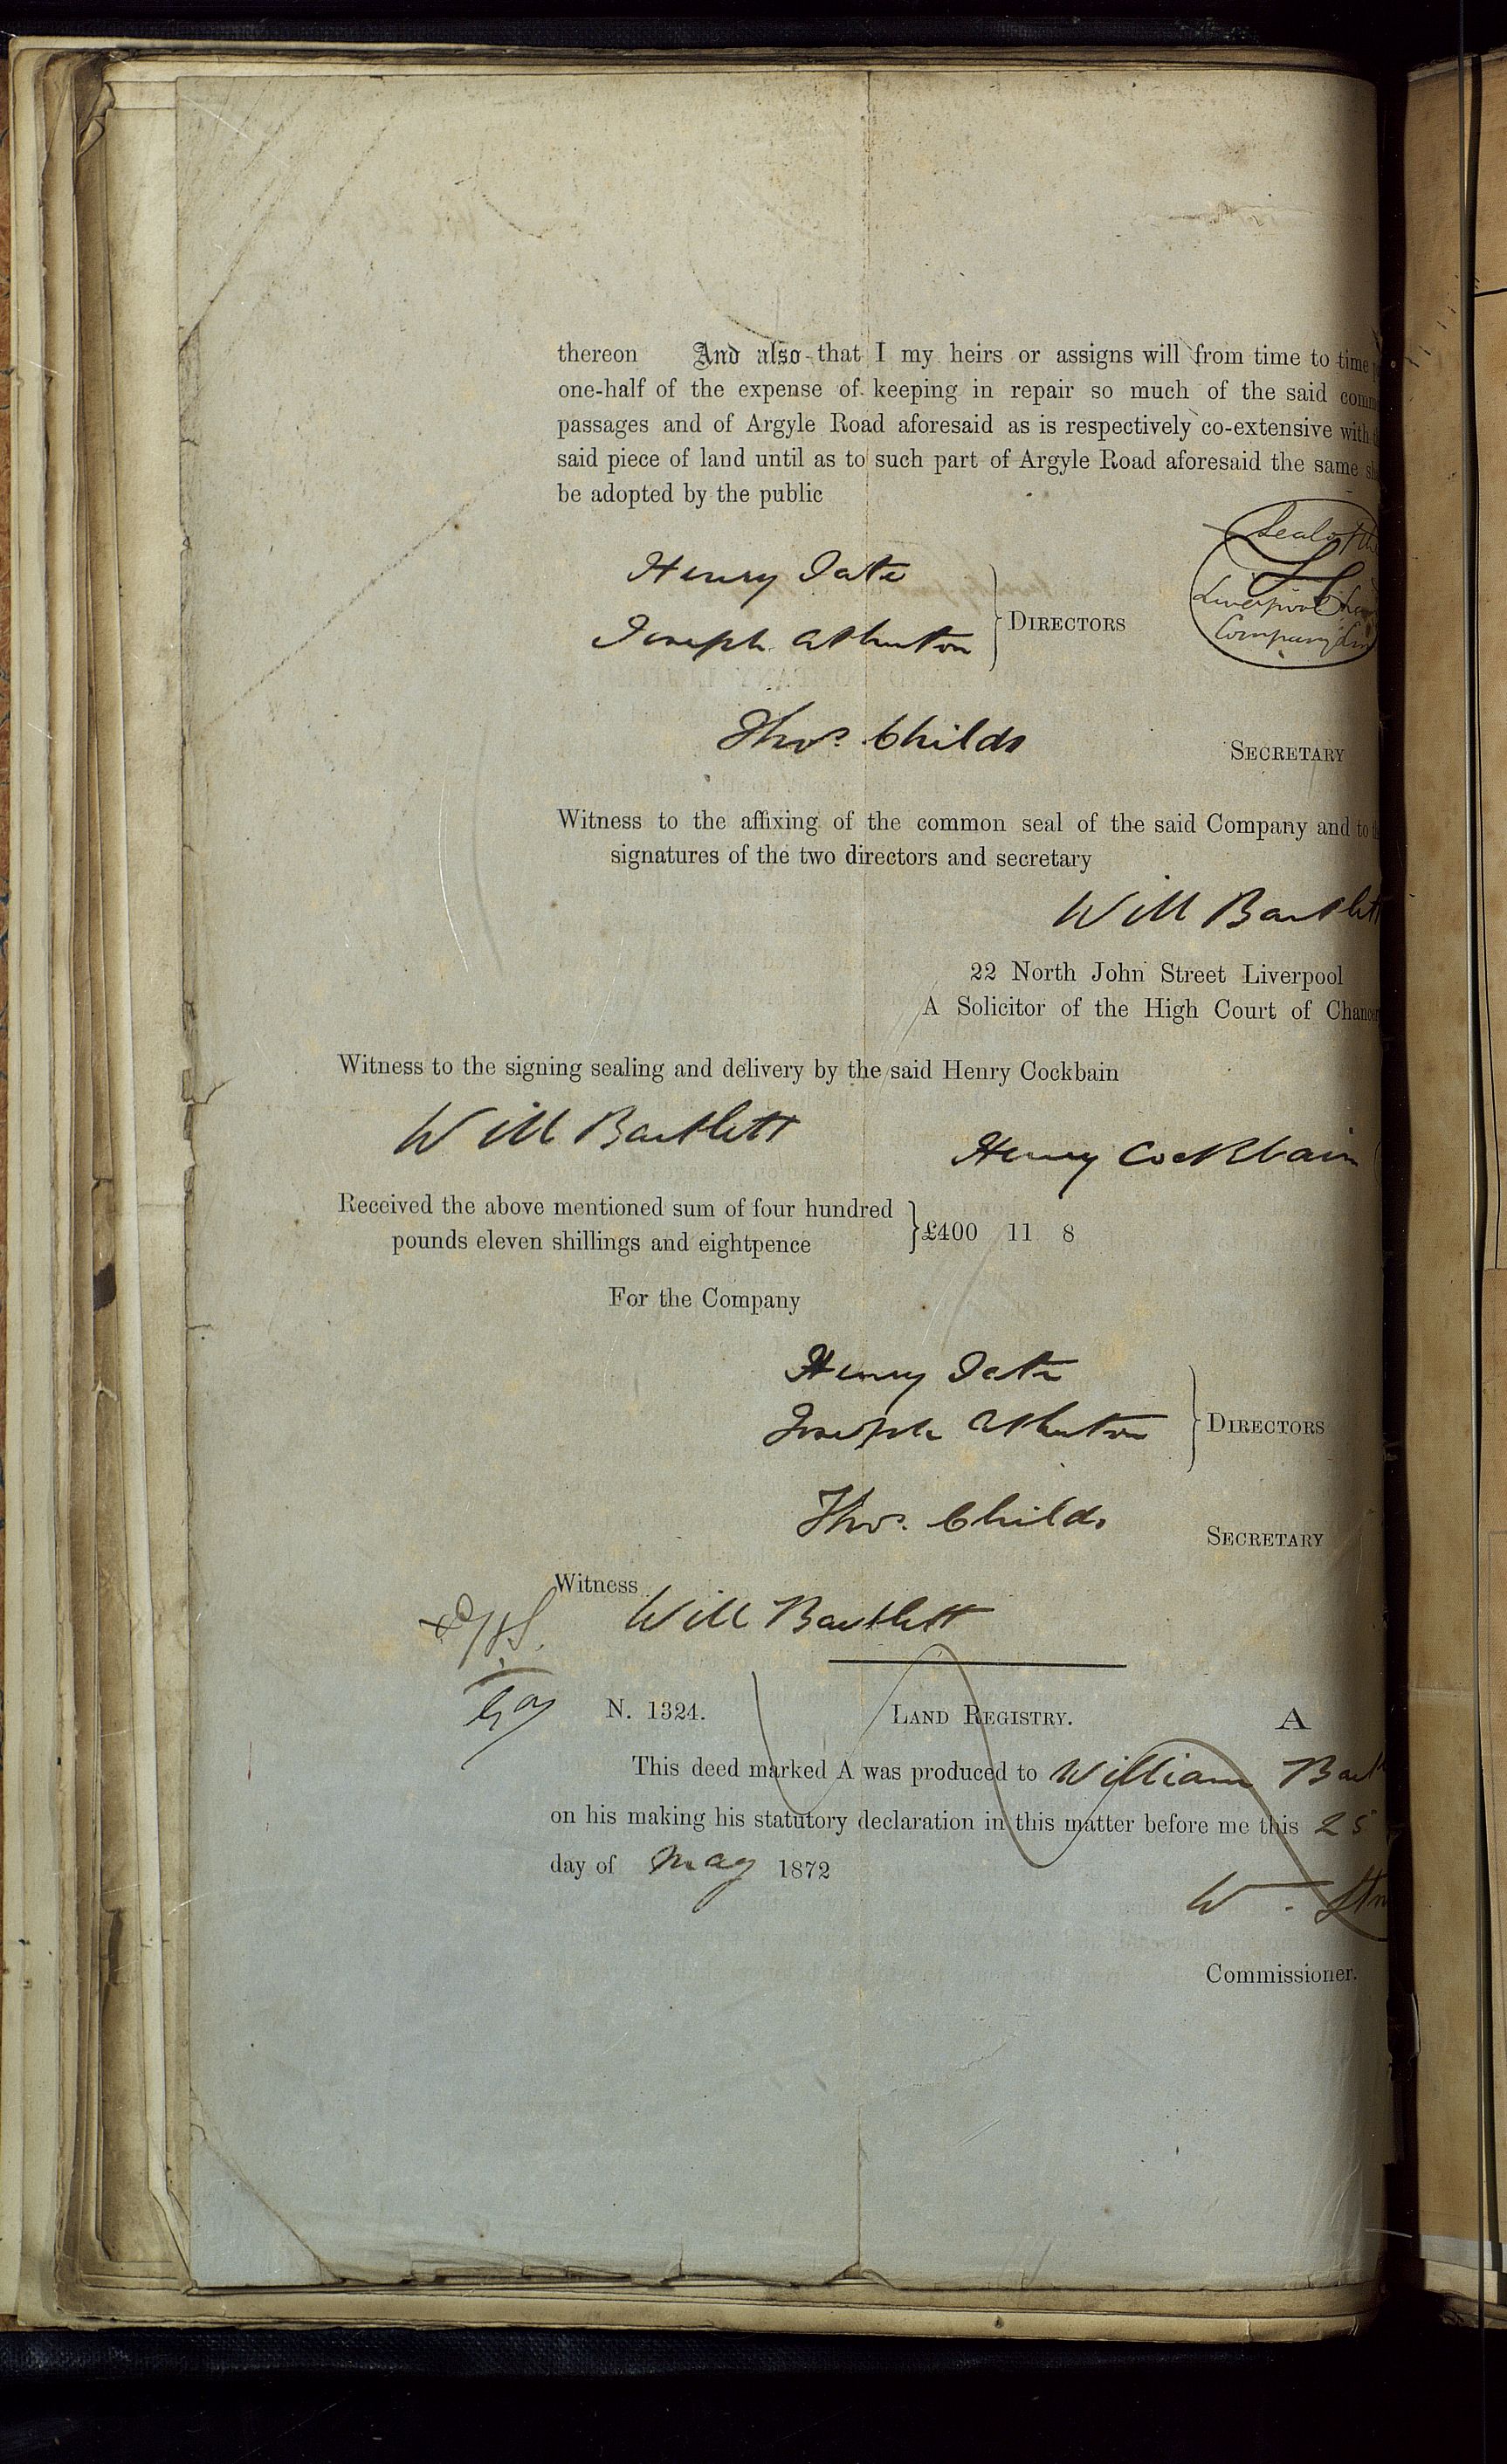 thereon And also that I my heirs or assigns will from time to time
one-half of the expense of keeping in repair so much of the said
passages and of Argyle Road aforesaid as is respectively co-extensive with
said piece of land until as to such part of Argyle Road aforesaid the same
be adopted by the public
Seal of the
LS
Liverpool
Company
Henry Tate
Joseph Atherton
DIRECTORS
Thos. Childs
SECRETARY
Witness to the affixing of the common seal of the said Company and to
signatures of the two directors and secretary
Will Bartlett
22 North John Street Liverpool
A Solicitor of the High Court of
Witness to the signing sealing and delivery by the said Henry Cockbain
Will Bartlett
Henry Cockbain
Received the above mentioned sum of four hundred
pounds eleven shillings and eightpence
£400 11 8
For the Company
Henry Tate
Joseph Atherton
DIRECTORS
Thos. Childs
SECRETARY
Witness
Will Bartlett
N. 1324. LAND REGISTRY. A
This deed marked A was produced to William
on his making his statutory declaration in this matter before me this 25
day of May 1872
W
Commissioner.